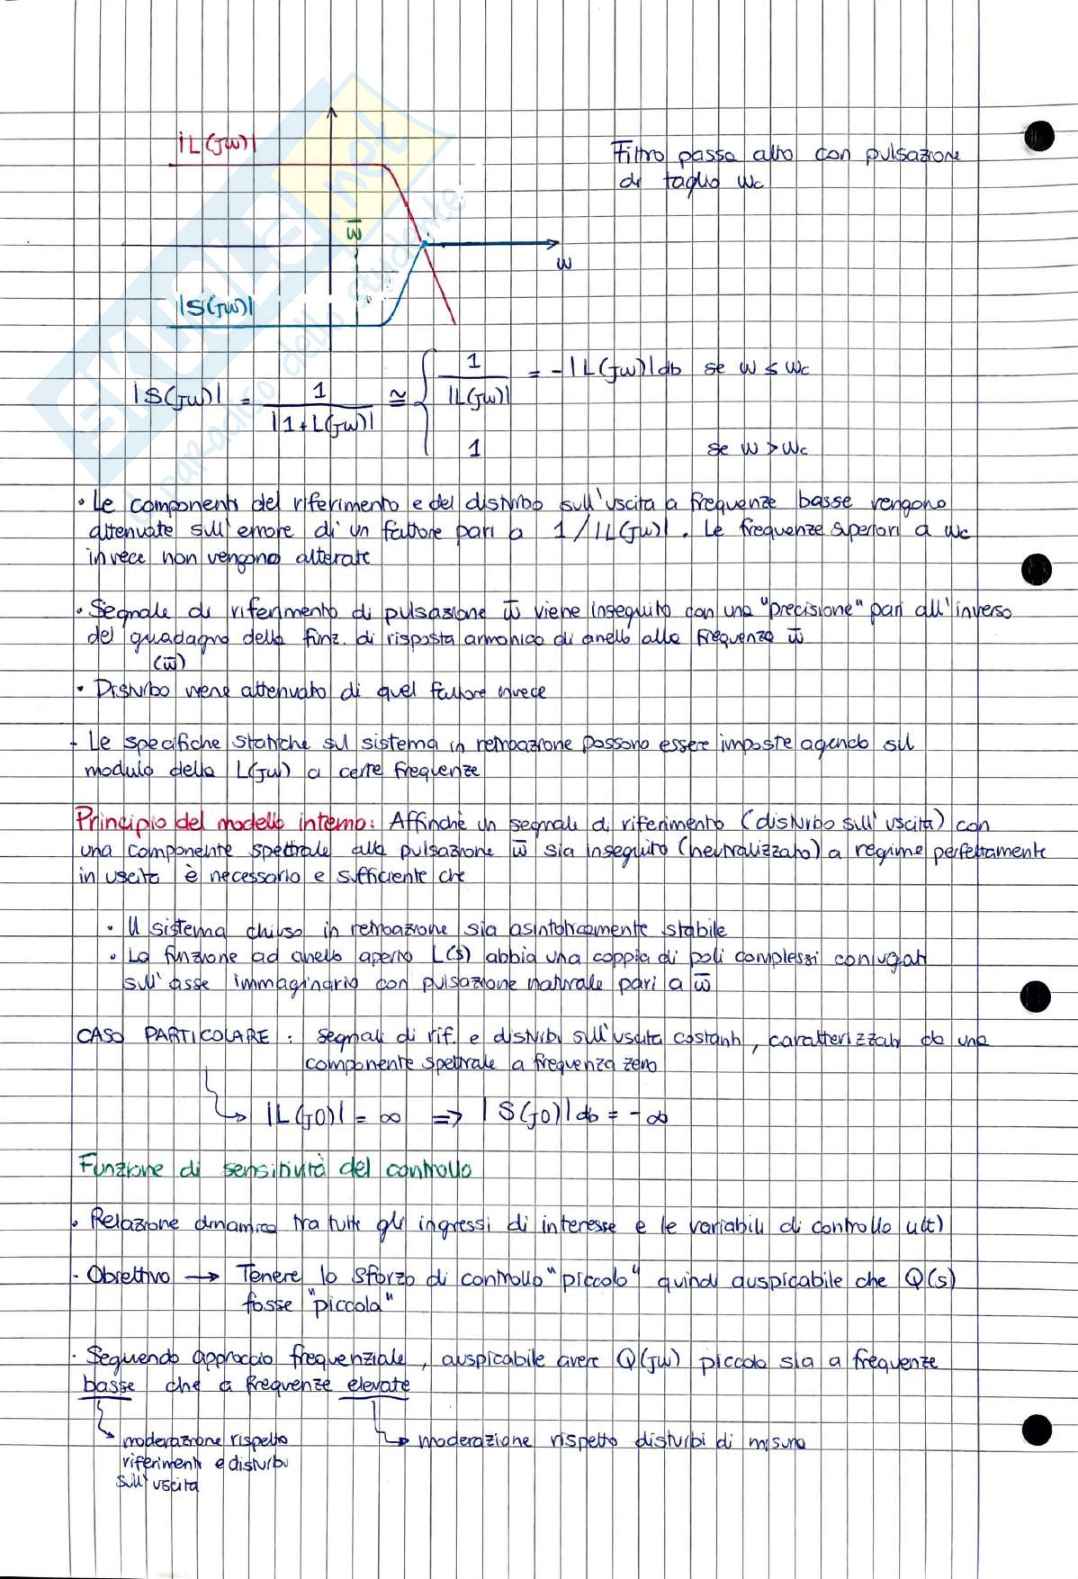 |L(jω)|
Filtro passa alto con pulsazione
di taglio ωc
ω̅
ω
|S(jω)|
|S(jω)| = 1 / |1+L(jω)| ≅ { 1 / |L(jω)| = -|L(jω)|db se ω ≤ ωc
1 se ω > ωc
• Le componenti del riferimento e del disturbo sull'uscita a frequenze basse vengono
attenuate sull'errore di un fattore pari a 1/|L(jω)|. Le frequenze superiori a ωc
invece non vengono alterate
• Segnale di riferimento di pulsazione ω̅ viene inseguito con una "precisione" pari all'inverso
del guadagno della funz. di risposta armonica di anello alla frequenza ω̅
(ω̅)
• Disturbo viene attenuato di quel fattore invece
- Le specifiche statiche sul sistema in retroazione possono essere imposte agendo sul
modulo della L(jω) a certe frequenze
Principio del modello interno: Affinché un segnale di riferimento (disturbo sull'uscita) con
una componente spettrale alla pulsazione ω̅ sia inseguito (neutralizzato) a regime perfettamente
in uscita è necessario e sufficiente che
• Il sistema chiuso in retroazione sia asintoticamente stabile
• La funzione ad anello aperto L(s) abbia una coppia di poli complessi coniugati
sull'asse immaginario con pulsazione naturale pari a ω̅
CASO PARTICOLARE: segnali di rif. e disturbi sull'uscita costanti, caratterizzati da una
componente spettrale a frequenza zero
↳ |L(j0)| = ∞ ⇒ |S(j0)|db = -∞
Funzione di sensitività del controllo
• Relazione dinamica tra tutti gli ingressi di interesse e le variabili di controllo u(t)
- Obiettivo → Tenere lo sforzo di controllo "piccolo" quindi auspicabile che Q(s)
fosse "piccola"
• Seguendo approccio frequenziale, auspicabile avere Q(jω) piccola sia a frequenze
basse che a frequenze elevate
↳ moderazione rispetto
riferimenti e disturbi
sull'uscita
↳ moderazione rispetto disturbi di misura